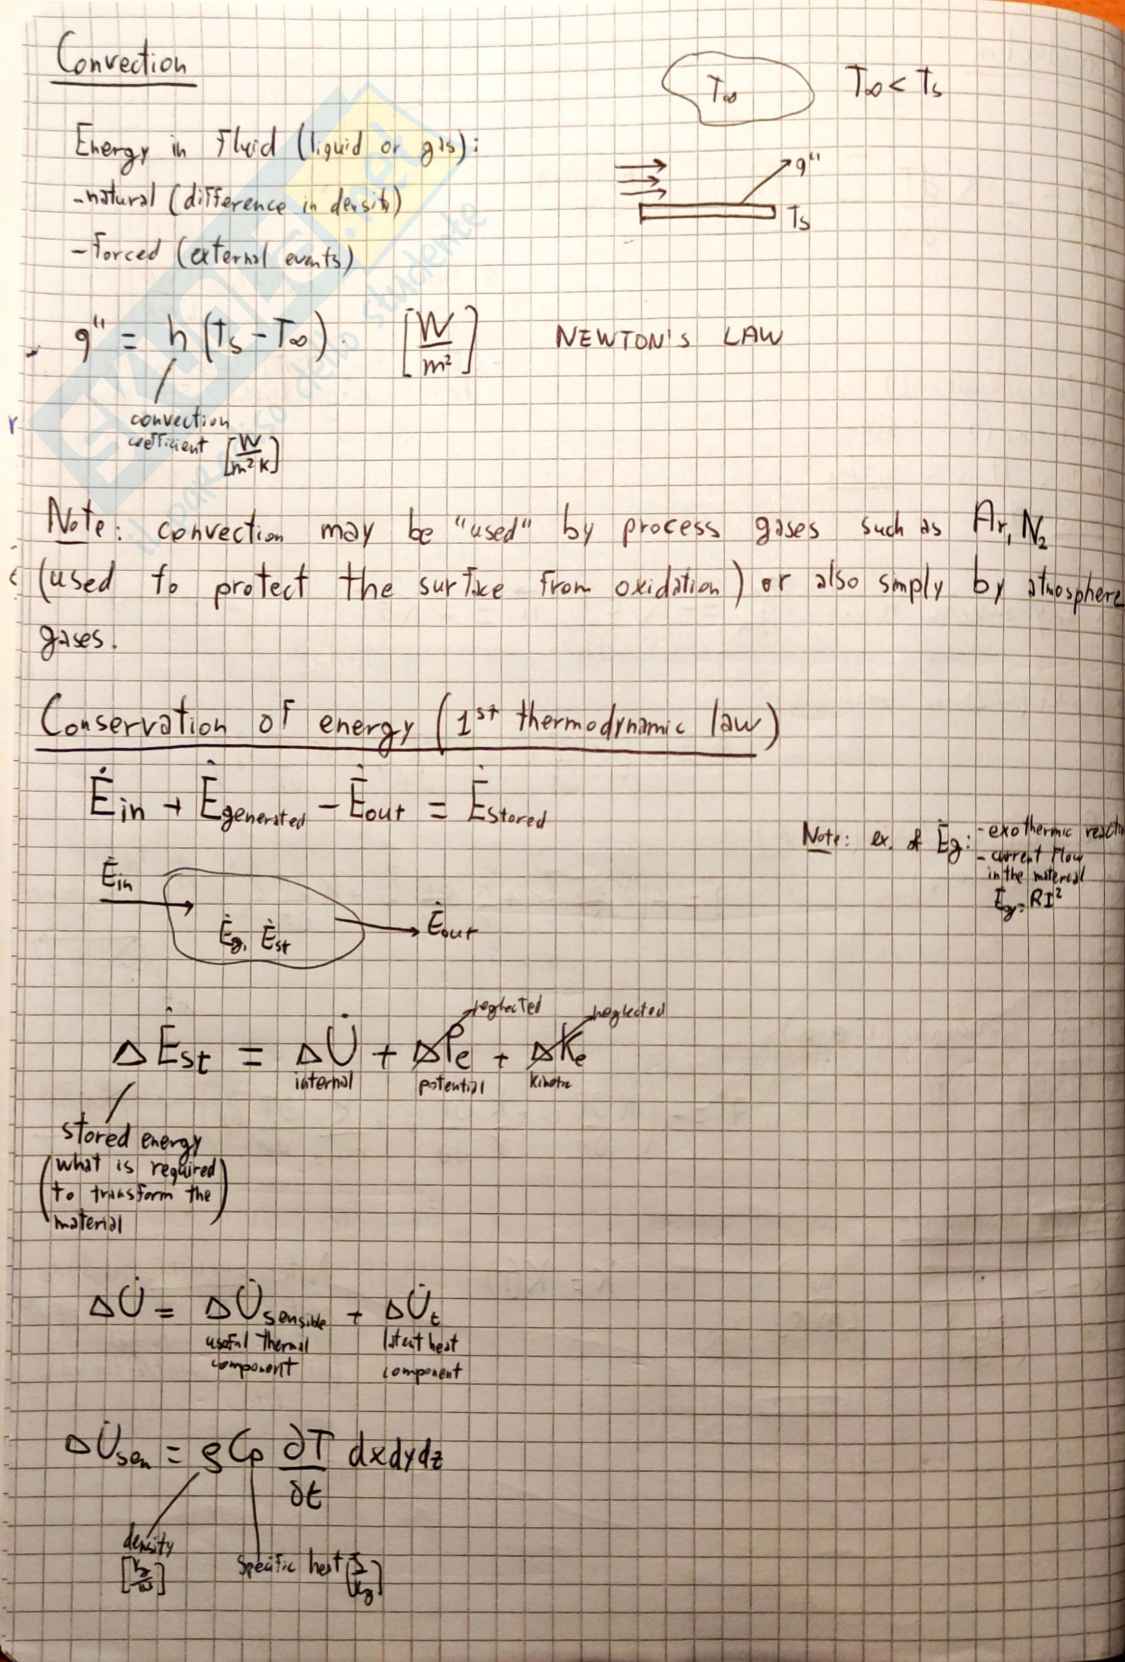 Convection
T∞
T∞ < Ts
Energy in fluid (liquid or gas):
-natural (difference in density)
-forced (external events)
q"
Ts
q" = h (Ts - T∞) [W/m²] NEWTON'S LAW
convection
coefficient [W/m²K]
Note: convection may be "used" by process gases such as Ar, N₂
(used to protect the surface from oxidation) or also simply by atmosphere
gases.
Conservation of energy (1st thermodynamic law)
Ėin + Ėgenerated - Ėout = Ėstored
Note: ex. of Ėg: -exothermic reactio
-current flow
in the material
Ėg = RI²
Ėin
Ėg, Ėst
Ėout
neglected
neglected
ΔĖst = ΔU̇ + ΔPe + ΔKe
internal potential kinetic
stored energy
(what is required
to transform the
material)
ΔU̇ = ΔU̇sensible + ΔU̇t
useful thermal
component
latent heat
component
ΔU̇sen = ρCp ∂T/∂t dxdydz
density
specific heat [J/kg]
EXAMS.net